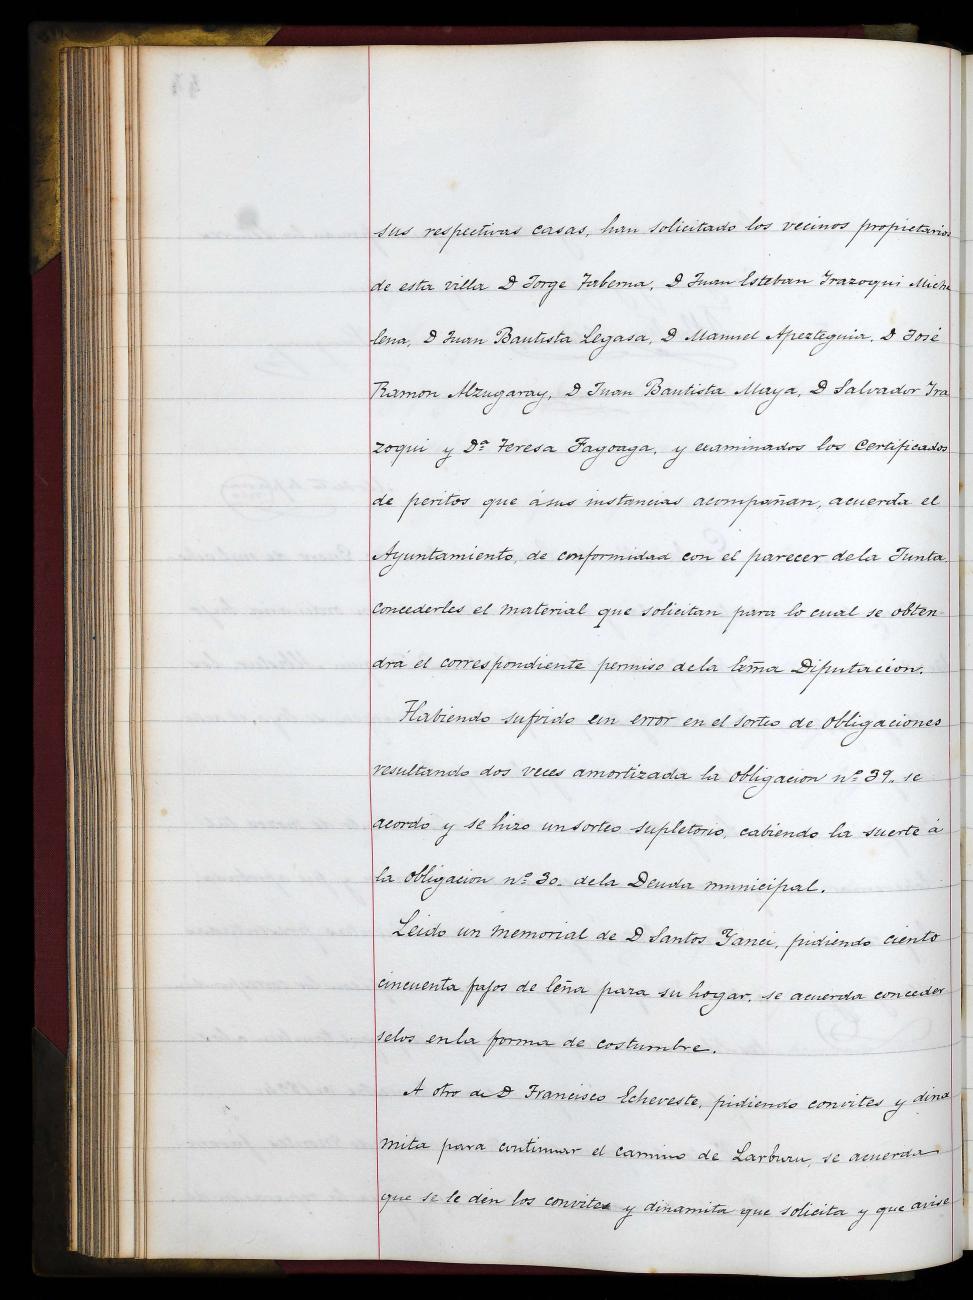 sus respectivas casas, han solicitado los vecinos propietarios
de esta villa D Jorge Taberna, D Juan Esteban Irazoqui Miche
lena, D Juan Bautista Legasa, D Manuel Apezteguia, D José
Ramon Alzugaray, D Juan Bautista Maya, D Salvador Ira
zoqui y Dª Teresa Fagoaga, y examinados los certificados
de peritos que á sus instancias acompañan, acuerda el
Ayuntamiento, de conformidad con el parecer de la Junta
concederles el material que solicitan para lo cual se obten
drá el correspondiente permiso de la Ecma Diputación.
Habiendo sufrido un error en el sorteo de obligaciones
resultando dos veces amortizada la obligacion nº 39, se
acordó y se hizo un sorteo supletorio, cabiendo la suerte á
la obligacion nº 30. de la Deuda municipal.
Leido un memorial de D Santos Yanci, pidiendo ciento
cincuenta fajos de leña para su hogar, se acuerda conceder
selos en la forma de costumbre.
A otro de D Francisco Echeveste, pidiendo convites y dina
mita para continuar el camino de Larburu, se acuerda
que se le dén los convites y dinamita que solicita y que avise